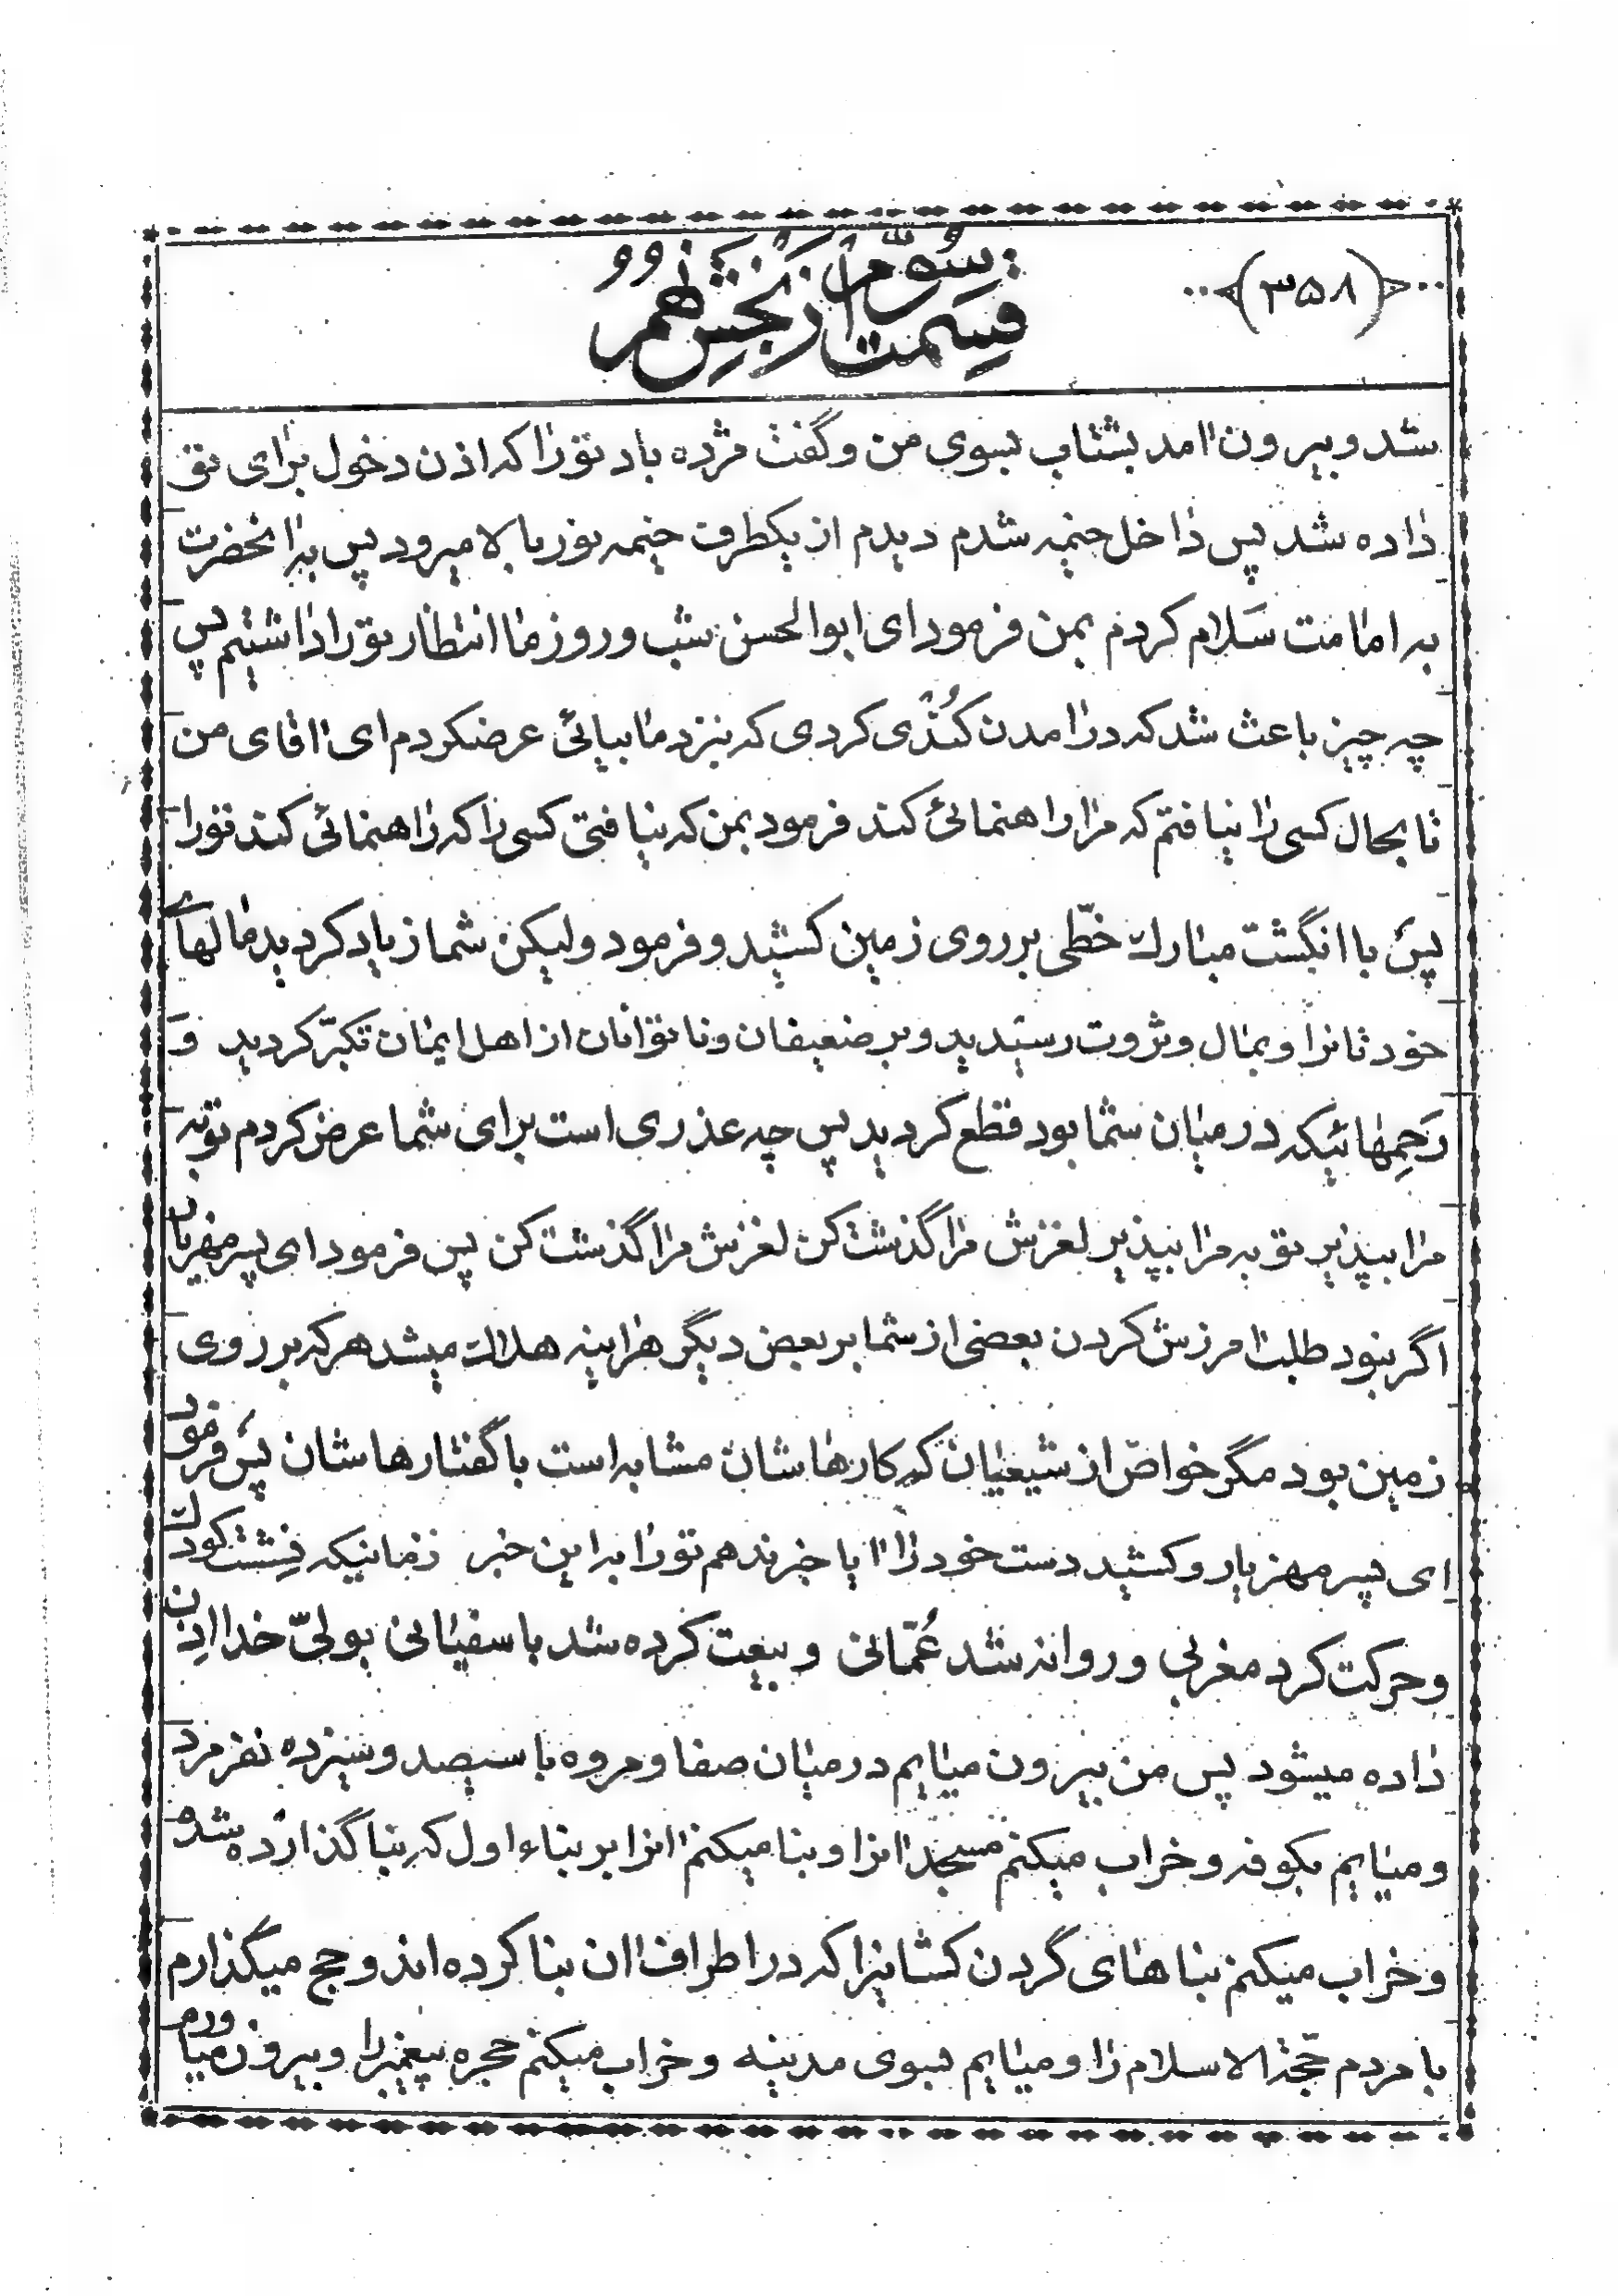 ﴿۳۵۸﴾
قسمت سوّم از بخش نهم
شد و بیرون آمد بشتاب بسوی من و گفت مژده باد تو را که اذن دخول برای تو
داده شد پس داخل خیمه شدم دیدم از یکطرف خیمه نور بالا میرود پس بر آنحضرت
به امامت سَلام کردم بمن فرمود ای ابوالحسن شب و روز ما انتظار تو را داشتیم پس
چه چیز باعث شد که در آمدن کُندی کردی که بنزد ما بیائی عرضکردم ای آقای من
تا بحال کسی را نیافتم که مرا راهنمائی کند فرمود بمن که نیافتی کسی را که راهنمائی کند تو را
پس با انگشت مبارک خطّی بر روی زمین کشید و فرمود ولیکن شما زیاد کردید مالهای
خودتانرا و بمال و ثروت رسیدید و بر ضعیفان و ناتوانان از اهل ایمان تکبّر کردید وَ
رَحِمهائیکه در میان شما بود قطع کردید پس چه عذری است برای شما عرض کردم توبه
مرا بپذیر توبه مرا بپذیر لغزش مرا گذشت کن لغزش مرا گذشت کن پس فرمود ای پسر مهزیار
اگر نبود طلب آمرزش کردن بعضی از شما بر بعض دیگر هراینه هلاک میشد هر که بر روی
زمین بود مگر خواصّ از شیعیان که کارهاشان مشابه است با گفتارهاشان پس فرمود
ای پسر مهزیار و کشید دست خود را آیا خبر ندهم تو را به این خبر زمانیکه نِشست کودک
و حرکت کرد مغربی و روانه شد عُمّانی و بیعت کرده شد با سفیانی بولیّ خدا اذن
داده میشود پس من بیرون میایم در میان صفا و مروه با سیصد و سیزده نفر مرد
و میایم بکوفه و خراب میکنم مسجد آنرا و بنا میکنم آنرا بر بناء اول که بنا گذارده شده
و خراب میکنم بناهای گردن کشانیرا که در اطراف آن بنا کرده اند و حج میگذارم
با مردم حجّة الاسلام را و میایم بسوی مدینه و خراب میکنم حجره پیغمبر را و بیرون میاورم